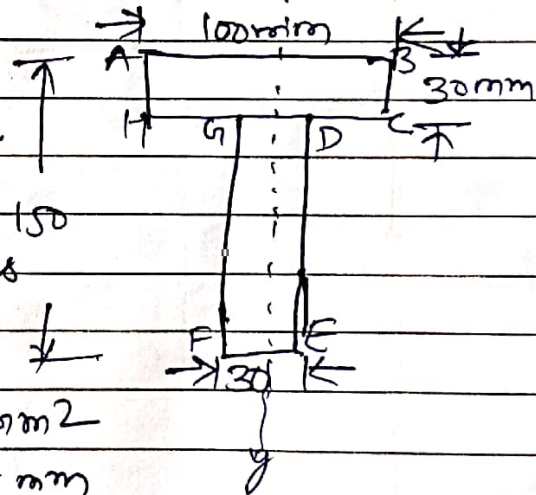 100mm
A B
30mm
H G D C
150
s
F E
30
mm2
mm
y